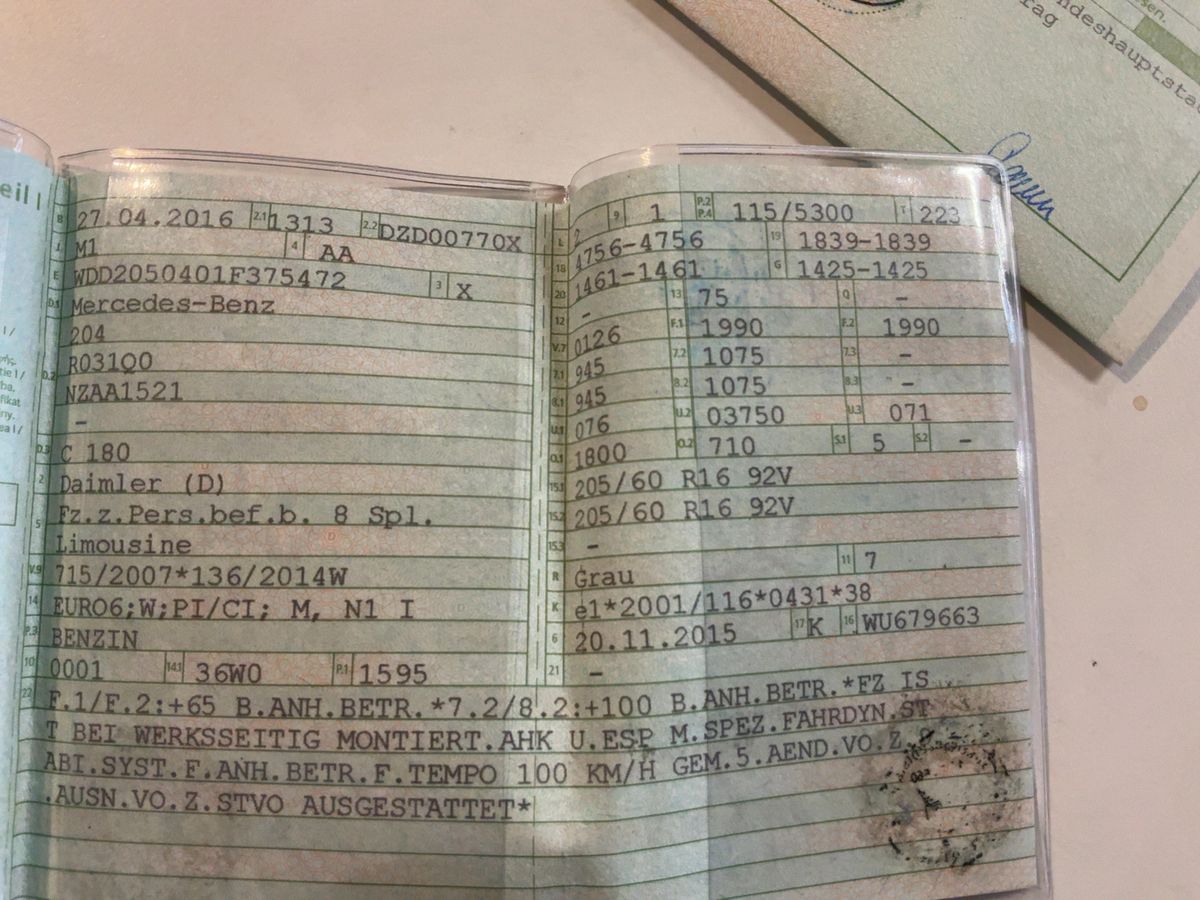 eil I
ndeshauptsta
rag
sen.
B 27.04.2016 2.1 1313 2.2 DZD00770X
J M1 4 AA
E WDD2050401F375472 3 X
D.1 Mercedes-Benz
204
D.2 R031Q0
NZAA1521
-
D.3 C 180
2 Daimler (D)
5 Fz.z.Pers.bef.b. 8 Spl.
Limousine
V.9 715/2007*136/2014W
14 EURO6;W;PI/CI; M, N1 I
P.3 BENZIN
10 0001 14.1 36W0 P.1 1595
L 2 9 1 P.2 P.4 115/5300 T 223
18 4756-4756 19 1839-1839
20 1461-1461 G 1425-1425
12 - 13 75 Q -
V.7 0126 F.1 1990 F.2 1990
7.1 945 7.2 1075 7.3 -
8.1 945 8.2 1075 8.3 -
U.1 076 U.2 03750 U.3 071
O.1 1800 O.2 710 S.1 5 S.2 -
15.1 205/60 R16 92V
15.2 205/60 R16 92V
15.3 -
R Grau 11 7
K e1*2001/116*0431*38
6 20.11.2015 17 K 16 WU679663
21 -
22 F.1/F.2:+65 B.ANH.BETR.*7.2/8.2:+100 B.ANH.BETR.*FZ IS
T BEI WERKSSEITIG MONTIERT.AHK U.ESP M.SPEZ.FAHRDYN.ST
ABI.SYST.F.ANH.BETR.F.TEMPO 100 KM/H GEM.5.AEND.VO.Z.
.AUSN.VO.Z.STVO AUSGESTATTET*